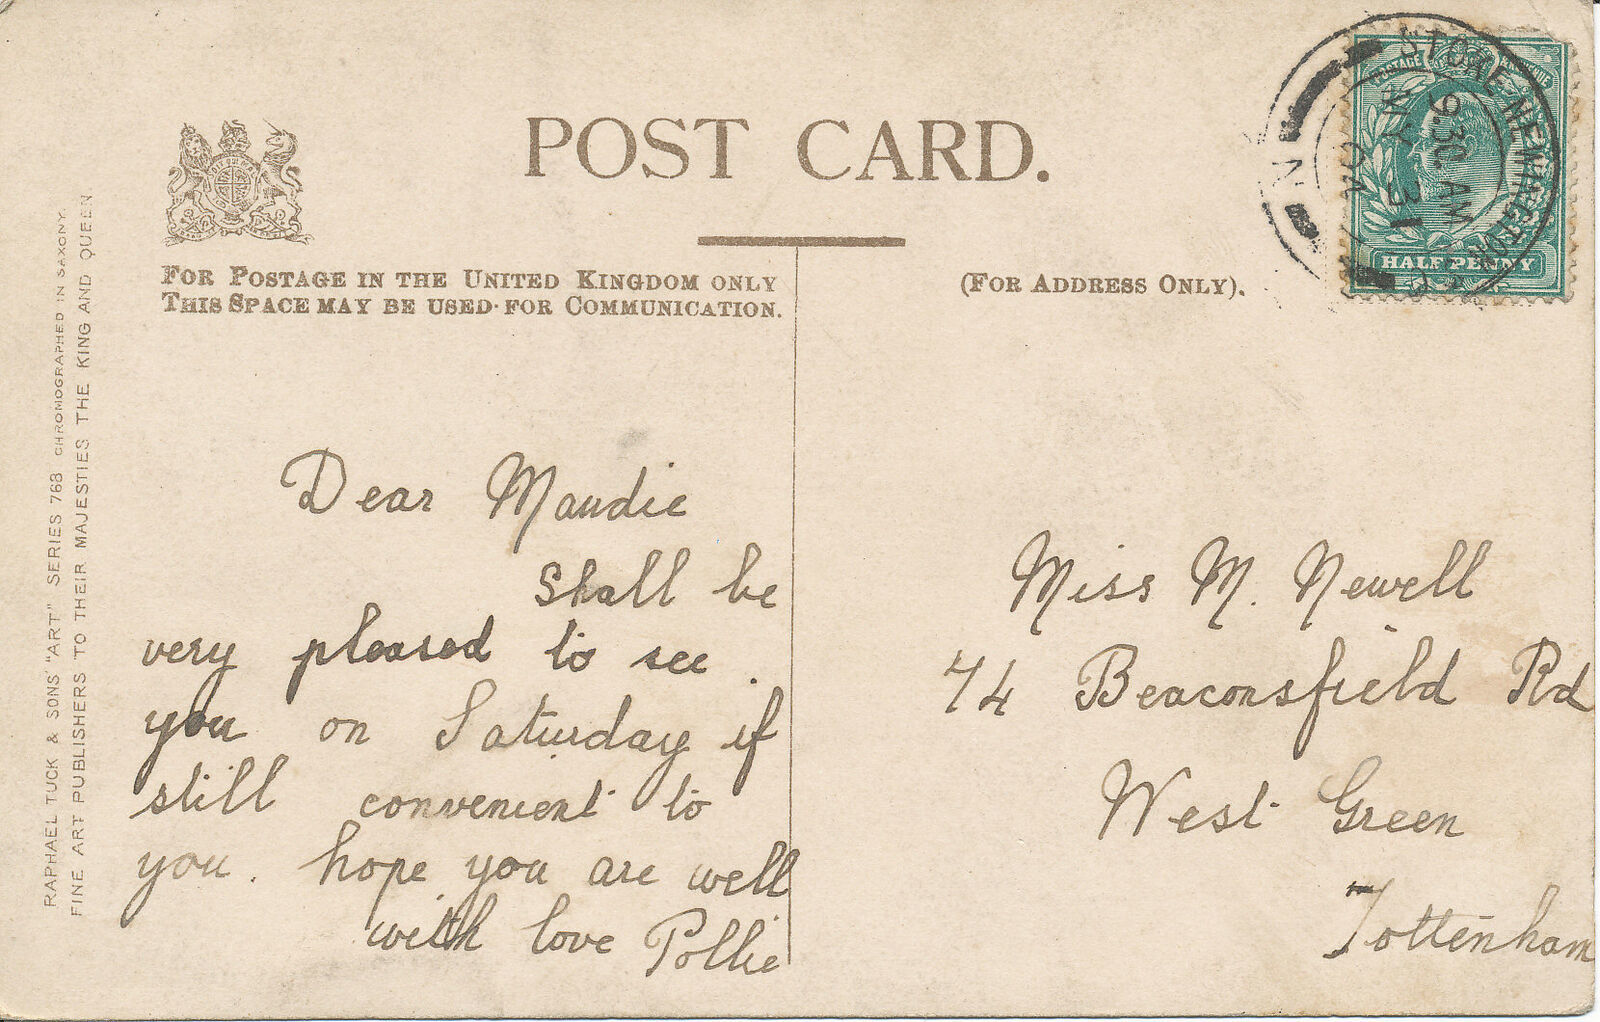 POST CARD.
FOR POSTAGE IN THE UNITED KINGDOM ONLY
THIS SPACE MAY BE USED FOR COMMUNICATION.
(FOR ADDRESS ONLY).
STOKE NEWINGTON
9.30 AM
MY 31
04
N
HALF PENNY
POSTAGE
RAPHAEL TUCK & SONS' "ART" SERIES 768 CHROMOGRAPHED IN SAXONY.
FINE ART PUBLISHERS TO THEIR MAJESTIES THE KING AND QUEEN
Dear Maudie
Shall be
very pleased to see
you on Saturday if
still convenient to
you. hope you are well
with love Pollie
Miss M. Newell
74 Beaconsfield Rd
West Green
Tottenham